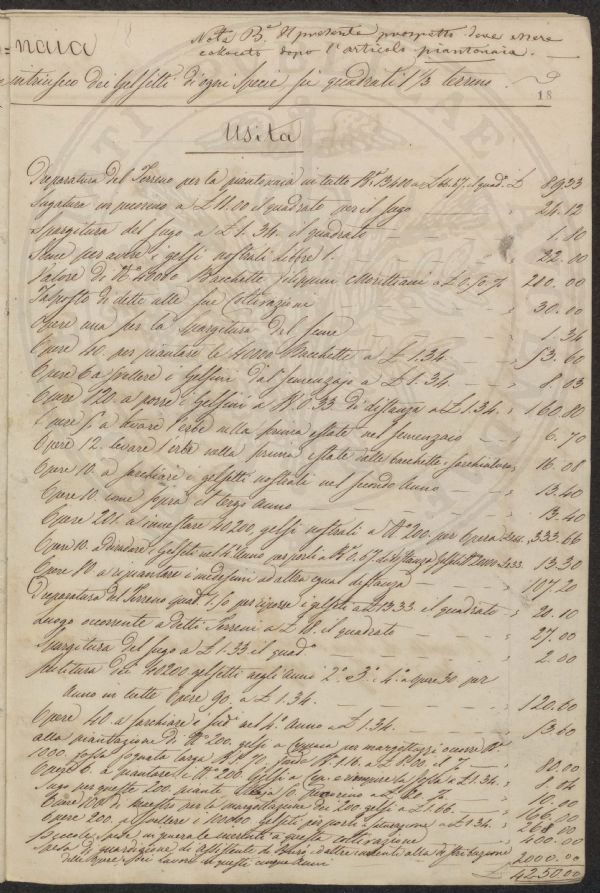 =naia
Nota B.ª Il presente prospetto deve essere
collocato dopo l'articolo piantonaia.
intrinseco dei Gelsetti di ogni Specie su quadrati 1⅓ terreno.
18
Usita
Preparatura del Terreno per la piantonaia in tutto a £ 66.67. il quad.º £ 89.33
Sugatura in pecorino a £ 18.00 il quadrato per il sugo 24.12
Spargitura del sugo a £ 1.34. il quadrato 1.80
Seme per avere i gelsi nostrali Libbre 1. 22.00
Valore di N.º 40000 Bacchette Filippini o Morettiani a £ 280.00
Trasporto di dette alle sue Coltivazioni 30.00
Opere una per la Spargitura del Seme 1.34
Opere 40. per piantare le 40000 Bacchette a £ 1.34. 53.60
Opere 6 a svellere i Gelsini dal Semenzajo a £ 1.34. 8.03
Opere 120. a porre i gelsini a B. 0.33. di distanza a £ 1.34. 160.80
Opere 5 a levare l'erbe nella prima estate nel Semenzaio 6.70
Opere 12. levare l'erbe nella prima Estate dalle bacchette e sarchiatura 16.08
Opere 10. a sarchiare i gelsetti nostrali nel secondo Anno 13.40
Opere 10 come sopra il terzo anno 13.40
Opere 201. a innestare 40200, gelsi nostrali a N.º 200. per Opera 333.66
Opere 10. a diradare i Gelsetti nel 4.º Anno per porli a B. 0.67. di distanza 13.30
Opere 80 a ripiantare i medesimi ad altra egual distanza 107.20
Preparatura del Terreno quad. per riporre i gelsetti a £ 13.33 il quadrato 20.10
Luogo occorrente a detto Terreni a £ 18. il quadrato 27.00
Spargitura del sugo a £ 1.33. il quad.º 2.00
Pulitura dei 40200 gelsetti negli Anni 2.º 3.º e 4.º Opere 30 per
Anno in tutte Opere 90. a £ 1.34. 120.60
Opere 40. a sarchiare e nel 4.º Anno a £ 1.34. 53.60
alla piantazione di N.º 200. gelsi a per margottazzi occorre B.
1000. fossa fognata larga fonda B. 1.16. a £ 8.00. il 80.00
Opere 6. a piantare i N.º 200. Gelsi a riempire la fossa a £ 1.34. 8.04
Sugo per queste 200. piante 10.00
Opere 100. di maestro per la margottazione dei 200. gelsi a £ 1.66 166.00
Opere 200. a svellere i 100000 gelsetti per porli a situazione a £ 1.34. 268.00
Piccole spese in generale inerenti a questa coltivazione 400.00
Spesa di guardianio di assistente ed altre inerenti alla distribuzione
delle Opere, Suoi Lavori in questi cinque Anni 2000.00
£ 4250.00